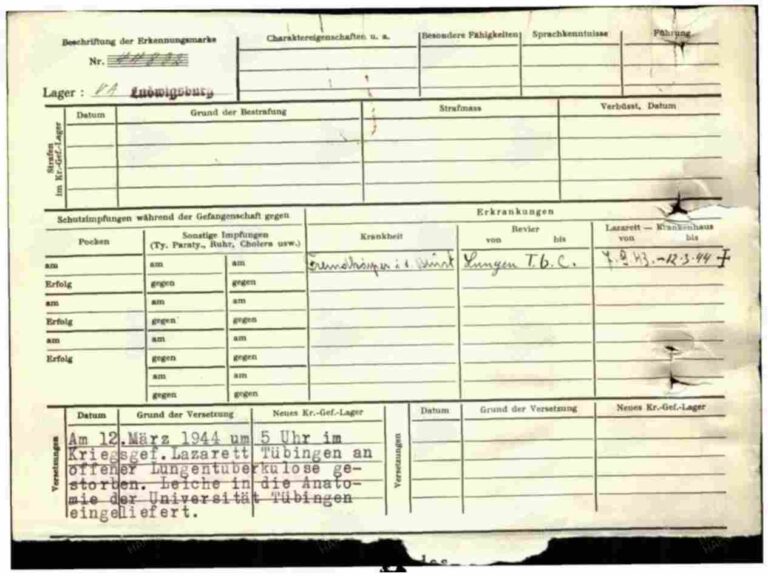 Beschriftung der Erkennungsmarke
Nr.
Lager: VA Ludwigsburg
Charaktereigenschaften u. a.
Besondere Fähigkeiten
Sprachkenntnisse
Führung
Strafen im Kr.-Gef.-Lager
Datum
Grund der Bestrafung
Strafmass
Verbüsst, Datum
Schutzimpfungen während der Gefangenschaft gegen
Erkrankungen
Pocken
Sonstige Impfungen
(Ty. Paraty., Ruhr, Cholera usw.)
Krankheit
Revier
von bis
Lazarett — Krankenhaus
von bis
am am am Fremdkörper i. d. Brust Lungen T.b.C. 7. 9. 43. - 12.3.44 +
Erfolg gegen gegen
am am am
Erfolg gegen gegen
am am am
Erfolg gegen gegen
am am
gegen gegen
Versetzungen
Datum Grund der Versetzung Neues Kr.-Gef.-Lager
Am 12.März 1944 um 5 Uhr im
Kriegsgef.Lazarett Tübingen an
offener Lungentuberkulose ge-
storben. Leiche in die Anato-
mie der Universität Tübingen
eingeliefert.
Versetzungen
Datum Grund der Versetzung Neues Kr.-Gef.-Lager